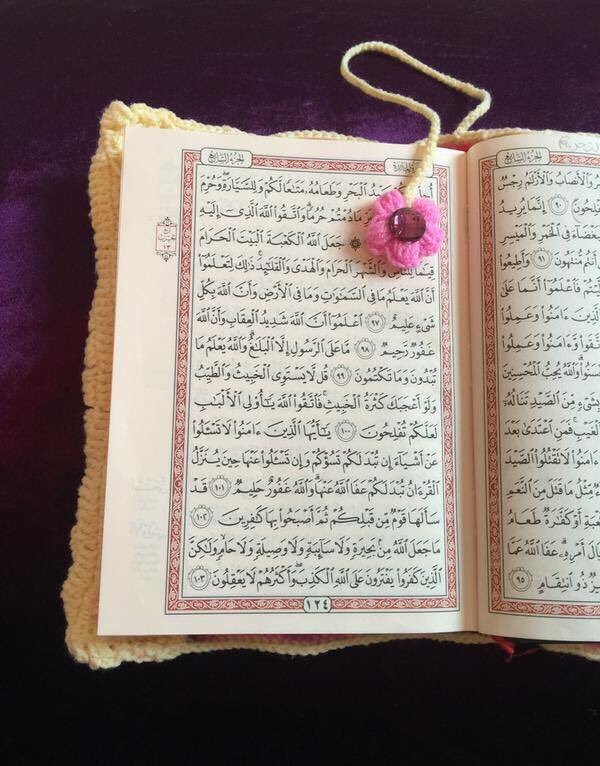 الجزء السابع
وَٱلْأَنصَابُ وَٱلْأَزْلَٰمُ رِجْسٌ
٩٠ إِنَّمَا يُرِيدُ
فِي ٱلْخَمْرِ وَٱلْمَيْسِرِ
أَنتُم مُّنتَهُونَ ٩١ وَأَطِيعُوا۟
فَٱعْلَمُوٓا۟ أَنَّمَا عَلَىٰ
ءَامَنُوا۟ وَعَمِلُوا۟
وَّءَامَنُوا۟ وَعَمِلُوا۟
وَٱللَّهُ يُحِبُّ ٱلْمُحْسِنِينَ
مِّنَ ٱلصَّيْدِ تَنَالُهُۥٓ
فَمَنِ ٱعْتَدَىٰ بَعْدَ
ءَامَنُوا۟ لَا تَقْتُلُوا۟ ٱلصَّيْدَ
مِّثْلُ مَا قَتَلَ مِنَ ٱلنَّعَمِ
أَوْ كَفَّٰرَةٌ طَعَامُ
أَمْرِهِۦ عَفَا ٱللَّهُ عَمَّا
ذُو ٱنتِقَامٍ ٩٥
الجزء السابع
ٱلْبَحْرِ وَطَعَامُهُۥ مَتَٰعًا لَّكُمْ وَلِلسَّيَّارَةِ وَحُرِّمَ
مَا دُمْتُمْ حُرُمًا وَٱتَّقُوا۟ ٱللَّهَ ٱلَّذِىٓ إِلَيْهِ
۞ جَعَلَ ٱللَّهُ ٱلْكَعْبَةَ ٱلْبَيْتَ ٱلْحَرَامَ
قِيَٰمًا لِّلنَّاسِ وَٱلشَّهْرَ ٱلْحَرَامَ وَٱلْهَدْىَ وَٱلْقَلَٰٓئِدَ ذَٰلِكَ لِتَعْلَمُوٓا۟
أَنَّ ٱللَّهَ يَعْلَمُ مَا فِى ٱلسَّمَٰوَٰتِ وَمَا فِى ٱلْأَرْضِ وَأَنَّ ٱللَّهَ بِكُلِّ
شَىْءٍ عَلِيمٌ ٩٧ ٱعْلَمُوٓا۟ أَنَّ ٱللَّهَ شَدِيدُ ٱلْعِقَابِ وَأَنَّ ٱللَّهَ
غَفُورٌ رَّحِيمٌ ٩٨ مَّا عَلَى ٱلرَّسُولِ إِلَّا ٱلْبَلَٰغُ وَٱللَّهُ يَعْلَمُ مَا
تُبْدُونَ وَمَا تَكْتُمُونَ ٩٩ قُل لَّا يَسْتَوِى ٱلْخَبِيثُ وَٱلطَّيِّبُ
وَلَوْ أَعْجَبَكَ كَثْرَةُ ٱلْخَبِيثِ فَٱتَّقُوا۟ ٱللَّهَ يَٰٓأُو۟لِى ٱلْأَلْبَٰبِ
لَعَلَّكُمْ تُفْلِحُونَ ١٠٠ يَٰٓأَيُّهَا ٱلَّذِينَ ءَامَنُوا۟ لَا تَسْـَٔلُوا۟
عَنْ أَشْيَآءَ إِن تُبْدَ لَكُمْ تَسُؤْكُمْ وَإِن تَسْـَٔلُوا۟ عَنْهَا حِينَ يُنَزَّلُ
ٱلْقُرْءَانُ تُبْدَ لَكُمْ عَفَا ٱللَّهُ عَنْهَا وَٱللَّهُ غَفُورٌ حَلِيمٌ ١٠١ قَدْ
سَأَلَهَا قَوْمٌ مِّن قَبْلِكُمْ ثُمَّ أَصْبَحُوا۟ بِهَا كَٰفِرِينَ ١٠٢
مَا جَعَلَ ٱللَّهُ مِنۢ بَحِيرَةٍ وَلَا سَآئِبَةٍ وَلَا وَصِيلَةٍ وَلَا حَامٍ وَلَٰكِنَّ
ٱلَّذِينَ كَفَرُوا۟ يَفْتَرُونَ عَلَى ٱللَّهِ ٱلْكَذِبَ وَأَكْثَرُهُمْ لَا يَعْقِلُونَ ١٠٣
١٢٤